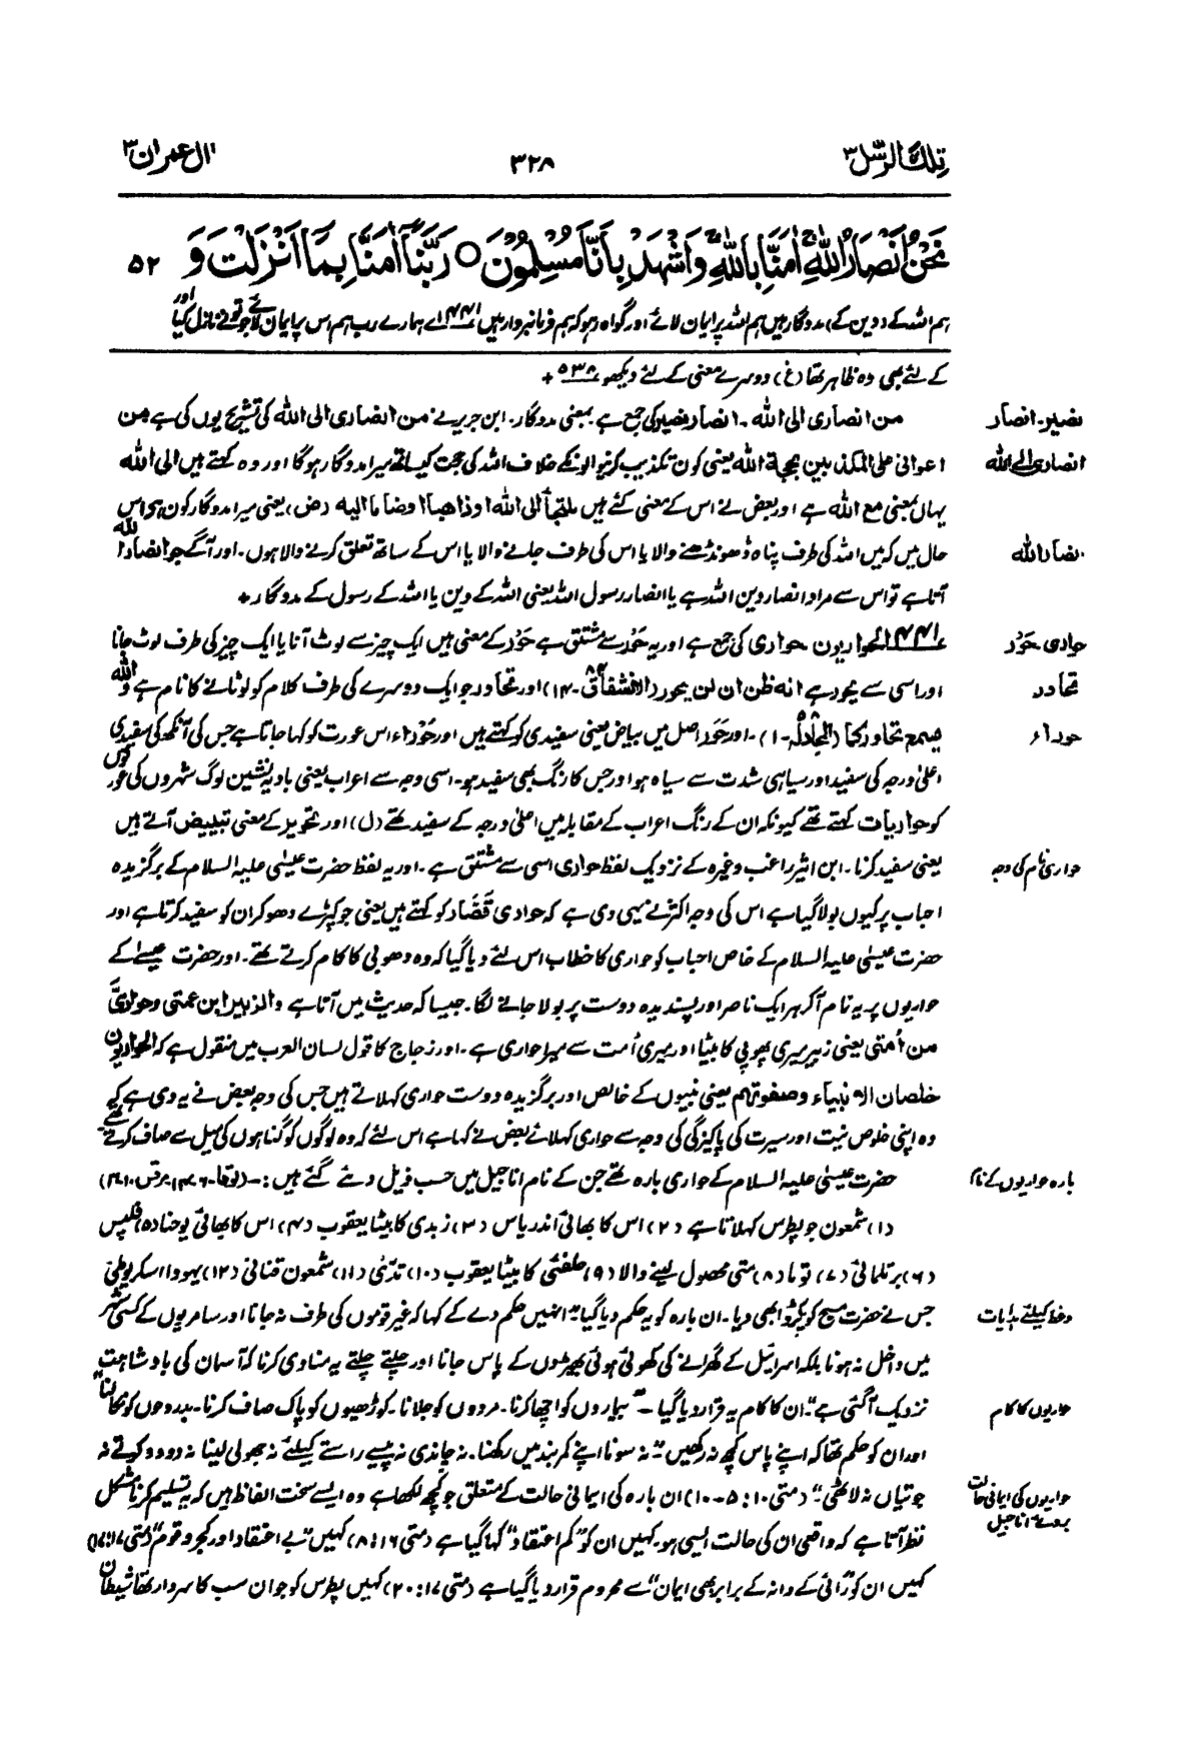 تِلْكَ الرُّسُلُ ۳
۳۲۸
اٰل عمران ۳
نَحْنُ اَنْصَارُ اللّٰهِ اٰمَنَّا بِاللّٰهِ وَاشْهَدْ بِاَنَّا مُسْلِمُوْنَ ○ رَبَّنَا اٰمَنَّا بِمَا اَنْزَلْتَ وَ ۵۲
ہم اللہ کے (دین کے) مددگار ہیں ہم اللہ پر ایمان لائے اور گواہ رہو کہ ہم فرمانبردار ہیں ۴۴۱ اے ہمارے رب ہم اس پر ایمان لائے جو تونے نازل کیا اور
کے لئے بھی وہ ظاہر تھا (غ) دوسرے معنی کے لئے دیکھو ۵۳۸ +
نصیر۔ انصار
من انصاری الی اللہ ۔ انصار نصیر کی جمع ہے بمعنی مددگار۔ ابن جریر نے من انصاری الی اللہ کی تشریح یوں کی ہے من
انصاری الی اللہ
اعوانی علی المکذبین بحجة اللہ یعنی کون تکذیب کرنیوالونکے خلاف اللہ کی حجت کیساتھ میرا مددگار ہوگا اور وہ کہتے ہیں الی اللہ
یہاں بمعنی مع اللہ ہے اور بعض نے اس کے معنی کئے ہیں ملتجأ الی اللہ او ذاھبا او ضاما الیہ (ض) یعنی میرا مددگار کون ہو اس
انصار اللہ
حال میں کہ میں اللہ کی طرف پناہ ڈھونڈھنے والا یا اس کی طرف جانے والا یا اس کے ساتھ تعلق کرنے والا ہوں۔ اور آگے جو انصار اللہ
آتا ہے تو اس سے مراد انصار دین اللہ ہے یا انصار رسول اللہ یعنی اللہ کے دین یا اللہ کے رسول کے مددگار +
حواری حَوْر
۴۴۱ الحواریون حواری کی جمع ہے اور یہ حَوْر سے مشتق ہے حَوْر کے معنی ہیں ایک چیز سے لوٹ آنا یا ایک چیز کی طرف لوٹ جانا
تحاور
اور اسی سے یحور ہے انہ ظن ان لن یحور (الانشقاق ۸۴-۱۴) اور تحاور جو ایک دوسرے کی طرف کلام کو لوٹانے کا نام ہے واللہ
حوراء
یسمع تحاورکما (المجادلۃ ۵۸-۱)۔ اور حَوَر اصل میں بیاض یعنی سفیدی کو کہتے ہیں اور حَوْراء اس عورت کو کہا جاتا ہے جس کی آنکھ کی سفیدی
اعلیٰ درجہ کی سفید اور سیاہی شدت سے سیاہ ہو اور جس کا رنگ بھی سفید ہو۔ اسی وجہ سے اعراب یعنی بادیہ نشین لوگ شہروں کی عورتوں
کو حواریات کہتے تھے کیونکہ ان کے رنگ اعراب کے مقابلہ میں اعلیٰ درجہ کے سفید تھے (ل) اور تحویر کے معنی تبییض آتے ہیں
حواری نام کی وجہ
یعنی سفید کرنا۔ ابن اثیر راغب وغیرہ کے نزدیک لفظ حواری اسی سے مشتق ہے۔ اور یہ لفظ حضرت عیسیٰ علیہ السلام کے برگزیدہ
احباب پر کیوں بولا گیا ہے اس کی وجہ اکثر نے یہی دی ہے کہ حواری قَصَّار کو کہتے ہیں یعنی جو کپڑے دھو کر ان کو سفید کرتا ہے اور
حضرت عیسیٰ علیہ السلام کے خاص احباب کو حواری کا خطاب اس لئے دیا گیا کہ وہ دھوبی کا کام کرتے تھے۔ اور حضرت عیسےٰ کے
حواریوں پر یہ نام آکر ہر ایک ناصر اور پسندیدہ دوست پر بولا جانے لگا۔ جیسا کہ حدیث میں آتا ہے والزبیر ابن عمتی وحواریَّ
من اُمتی یعنی زبیر میری پھوپی کا بیٹا اور میری اُمت سے میرا حواری ہے۔ اور زجاج کا قول لسان العرب میں منقول ہے کہ الحواریون
خلصان الانبیاء وصفوتھم یعنی نبیوں کے خالص اور برگزیدہ دوست حواری کہلاتے ہیں جس کی وجہ بعض نے یہ دی ہے کہ
وہ اپنی خلوص نیت اور سیرت کی پاکیزگی کی وجہ سے حواری کہلائے بعض نے کہا ہے اس لئے کہ وہ لوگوں کو گناہوں کی میل سے صاف کرتے تھے۔
بارہ حواریوں کے نام
حضرت عیسیٰ علیہ السلام کے حواری بارہ تھے جن کے نام اناجیل میں حسب ذیل دئے گئے ہیں :-
(۱) شمعون جو پطرس کہلاتا ہے (۲) اس کا بھائی اندریاس (۳) زبدی کا بیٹا یعقوب (۴) اس کا بھائی یوحنا (۵) فلپس
(۶) برتلمائی (۷) توما (۸) متی محصول لینے والا (۹) حلفئی کا بیٹا یعقوب (۱۰) تدّئی (۱۱) شمعون قنانی (۱۲) یہودا اسکریوطی
وعظ کیلئے ہدایات
جس نے حضرت مسیح کو پکڑوا بھی دیا۔ ان بارہ کو یہ حکم دیا گیا "انہیں حکم دے کے کہا کہ غیر قوموں کی طرف نہ جانا اور سامریوں کے کسی شہر
میں داخل نہ ہونا بلکہ اسرائیل کے گھرانے کی کھوئی ہوئی بھیڑوں کے پاس جانا اور چلتے چلتے یہ منادی کرنا کہ آسمان کی بادشاہت
حواریوں کا کام
نزدیک آگئی ہے" ان کا کام یہ قرار دیا گیا۔ "بیماروں کو اچھا کرنا۔ مردوں کو جلانا۔ کوڑھیوں کو پاک صاف کرنا۔ بدروحوں کو نکالنا"
اور ان کو حکم تھا کہ اپنے پاس کچھ نہ رکھیں "نہ سونا اپنے کمربند میں رکھنا۔ نہ چاندی نہ پیسے راستے کیلئے نہ جھولی لینا نہ دو دو کرتے نہ
حواریوں کی ایمانی حالت بروئے اناجیل
جوتیاں نہ لاٹھی" (متی ۱۰: ۵-۱۰) ان بارہ کی ایمانی حالت کے متعلق جو کچھ لکھا ہے وہ ایسے سخت الفاظ ہیں کہ یہ تسلیم کرنا مشکل
نظر آتا ہے کہ واقعی ان کی حالت ایسی ہو۔ کہیں ان کو "کم اعتقاد" کہا گیا ہے (متی ۱۶: ۸) کہیں "بے اعتقاد اور کجرو قوم" (متی ۱۷: ۱۷)
کہیں ان کو "رائی کے دانہ کے برابر بھی ایمان" سے محروم قرار دیا گیا ہے (متی ۱۷: ۲۰) کہیں پطرس کو جو ان سب کا سردار تھا شیطان